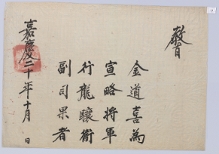 敎旨
金道喜為
宣略將軍
行龍驤衛
副司果者
嘉慶二十年十月 日